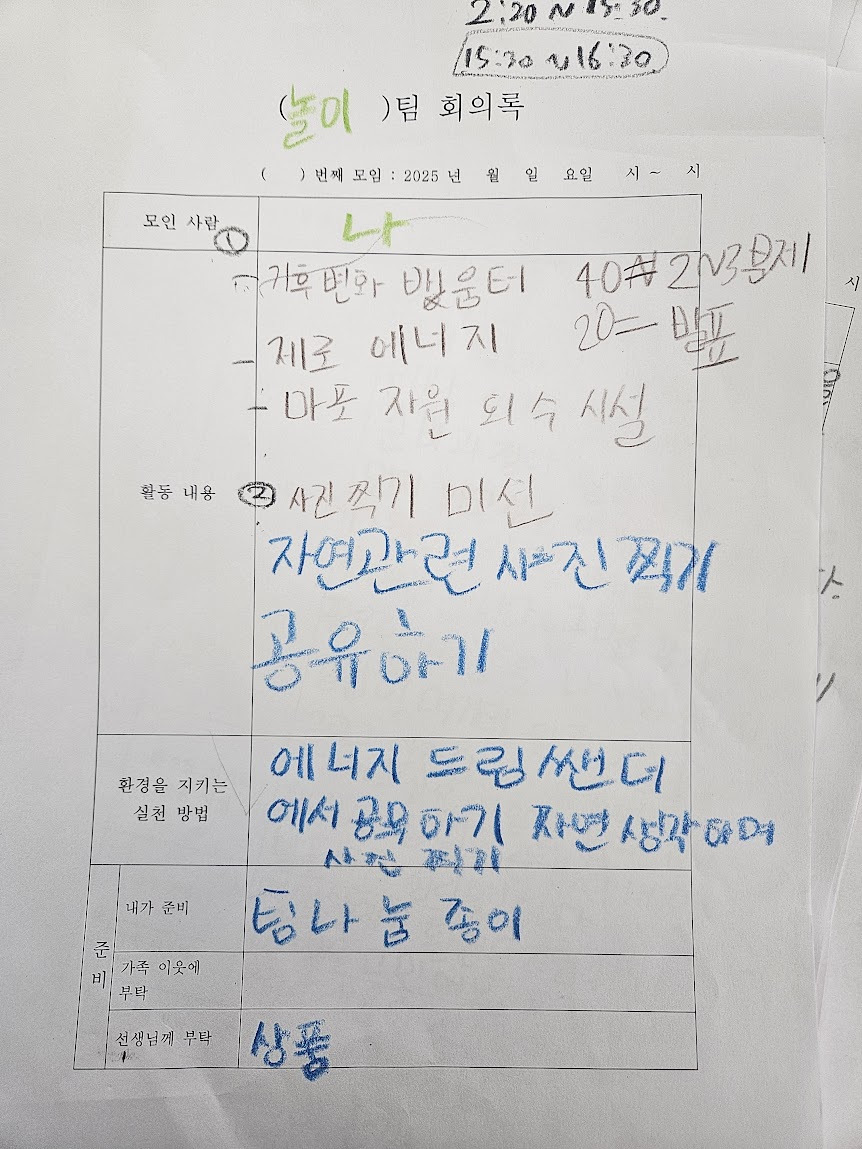 2:20 ~ 15:30.
15:30 ~ 16:30
(놀이)팀 회의록
( ) 번째 모임 : 2025 년 월 일 요일 시 ~ 시
모인 사람 나
①
기후변화 배움터 40 2~3문제
- 제로 에너지 20 발표
- 마포 자원 회수 시설
활동 내용 ② 사진 찍기 미션
자연관련 사진 찍기
공유하기
환경을 지키는 실천 방법
에너지 드림쎈터
에서 공유하기 자연생각하며
사진 찍기
준비
내가 준비 팀나눔 종이
가족 이웃에 부탁
선생님께 부탁 상품
시